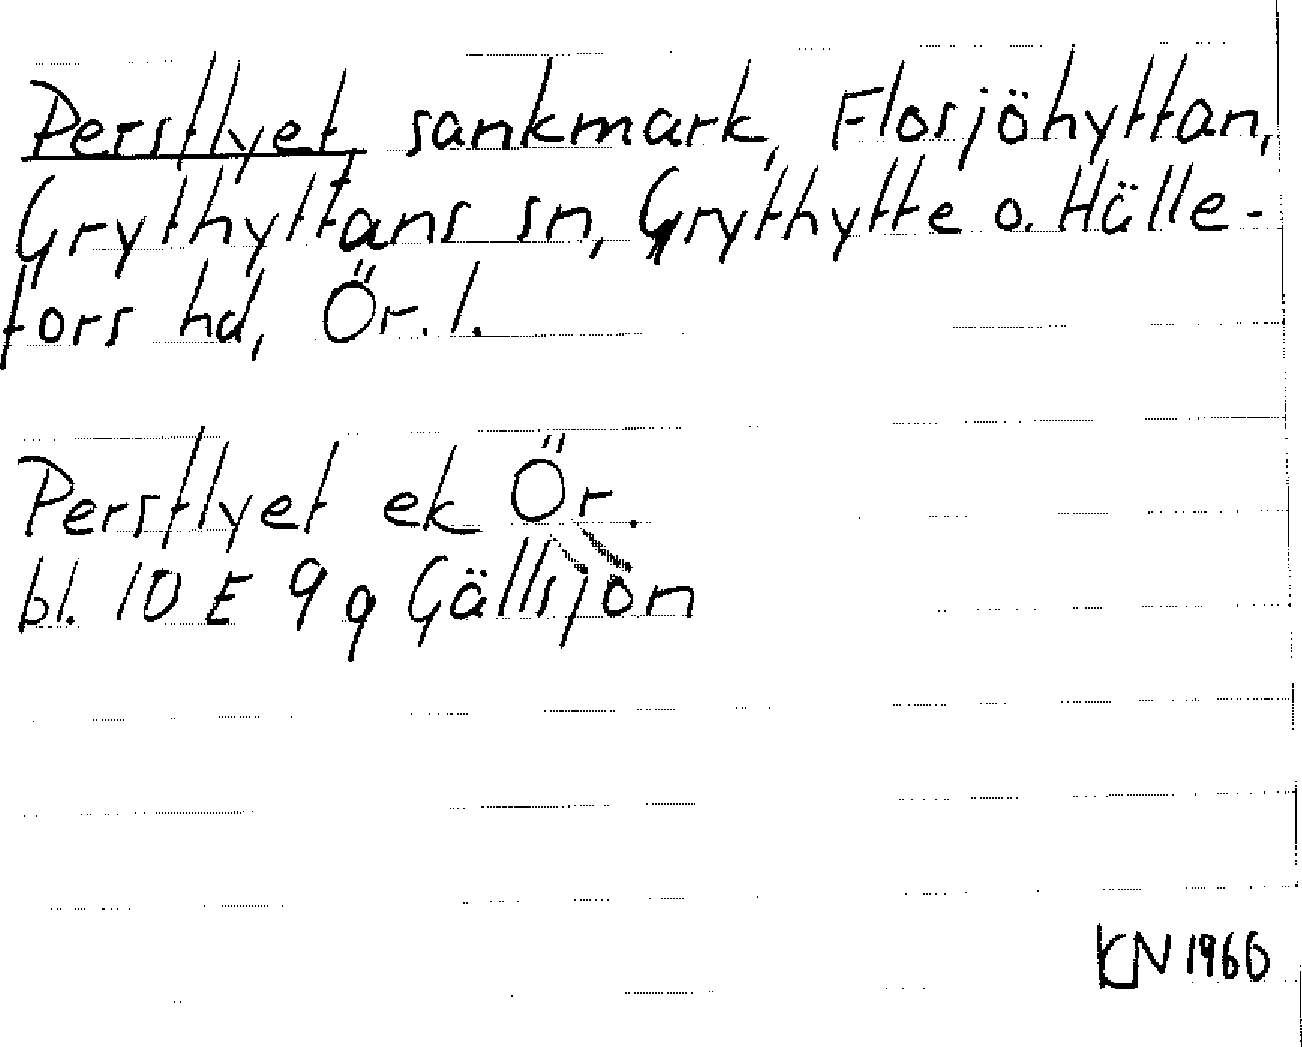 Persflyet sankmark, Flosjöhyttan,
Grythyttans sn, Grythytte o. Hälle-
fors hd, Ör. l.
Persflyet ek Ör.
bl. 10 E 9 g Gällsjön
KN 1966